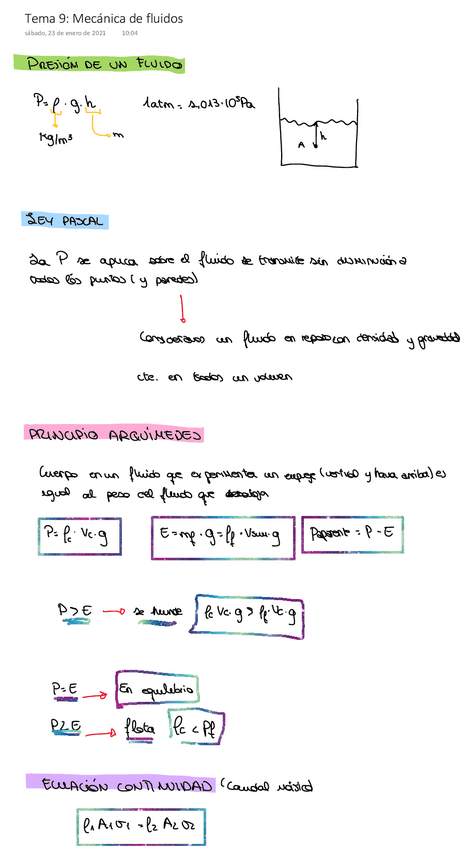 Tema 9: Mecánica de fluidos
sábado, 23 de enero de 2021 10:04
PRESIÓN DE UN FLUIDO
P = ρ · g · h
1atm = 1,013·10⁵Pa
kg/m³
m
h
A
LEY PASCAL
La P se aplica sobre el fluido se transmite sin disminución a
todos los puntos (y paredes)
Consideramos un fluido en reposo con densidad y gravedad
cte. en todos un volumen
PRINCIPIO ARQUÍMEDES
Cuerpo en un fluido que experimenta un empuje (vertical y hacia arriba) es
igual al peso del fluido que desaloja
P = ρc · Vc · g
E = mf · g = ρf · Vsum · g
Paparente = P - E
P > E → se hunde
ρc Vc · g > ρf · Vc · g
P = E → En equilibrio
P < E → flota
ρc < ρf
ECUACIÓN CONTINUIDAD (Caudal másico)
ρ1 A1 v1 = ρ2 A2 v2